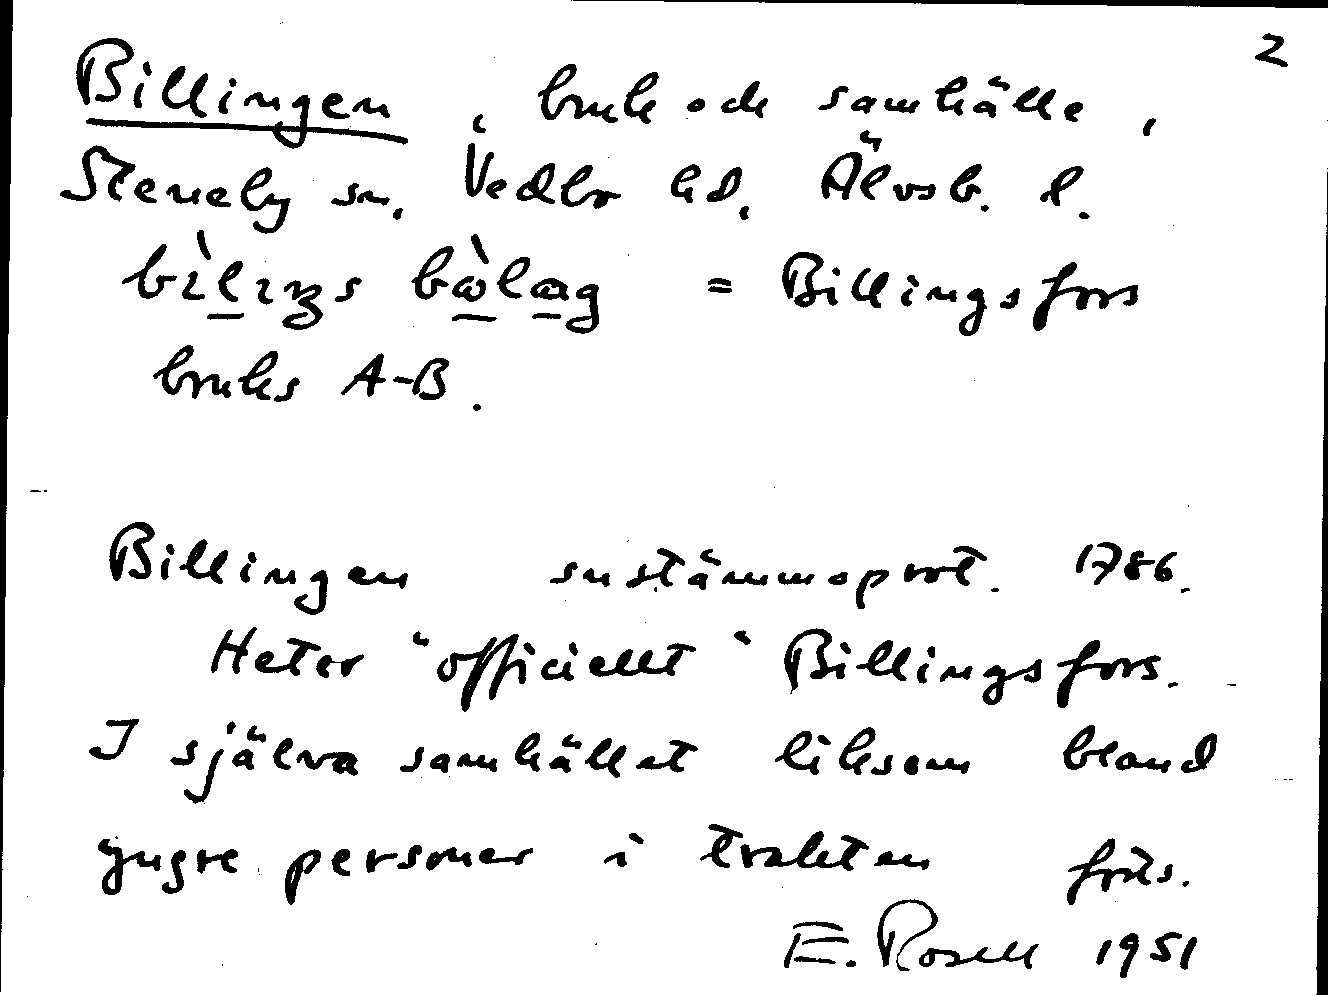 2
Billingen, bruk och samhälle,
Steneby sn, Vedbo hd, Älvsb. l.
bìlıŋs bòlag = Billingsfors
bruks A-B.
Billingen sustämmoprot. 1786.
Heter "officiellt" Billingsfors.
I själva samhället liksom bland
yngre personer i trakten
E. Rosell 1951